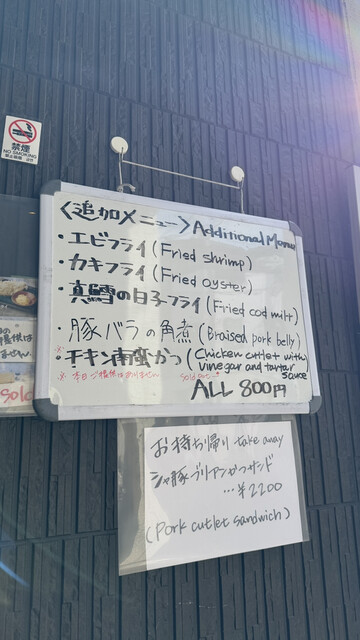 禁煙
NO SMOKING
<追加メニュー> Additional Menu
・エビフライ (Fried shrimp)
・カキフライ (Fried oyster)
・真鱈の白子フライ (Fried cod milt)
・豚バラの角煮 (Braised pork belly)
・チキン南蛮かつ (Chicken cutlet with vinegar and tartar sauce
※ 本日ご提供はありません Sold out
ALL 800円
お持ち帰り take away
シャ豚ブリアンかつサンド
…¥2200
(Pork cutlet sandwich)
Sold